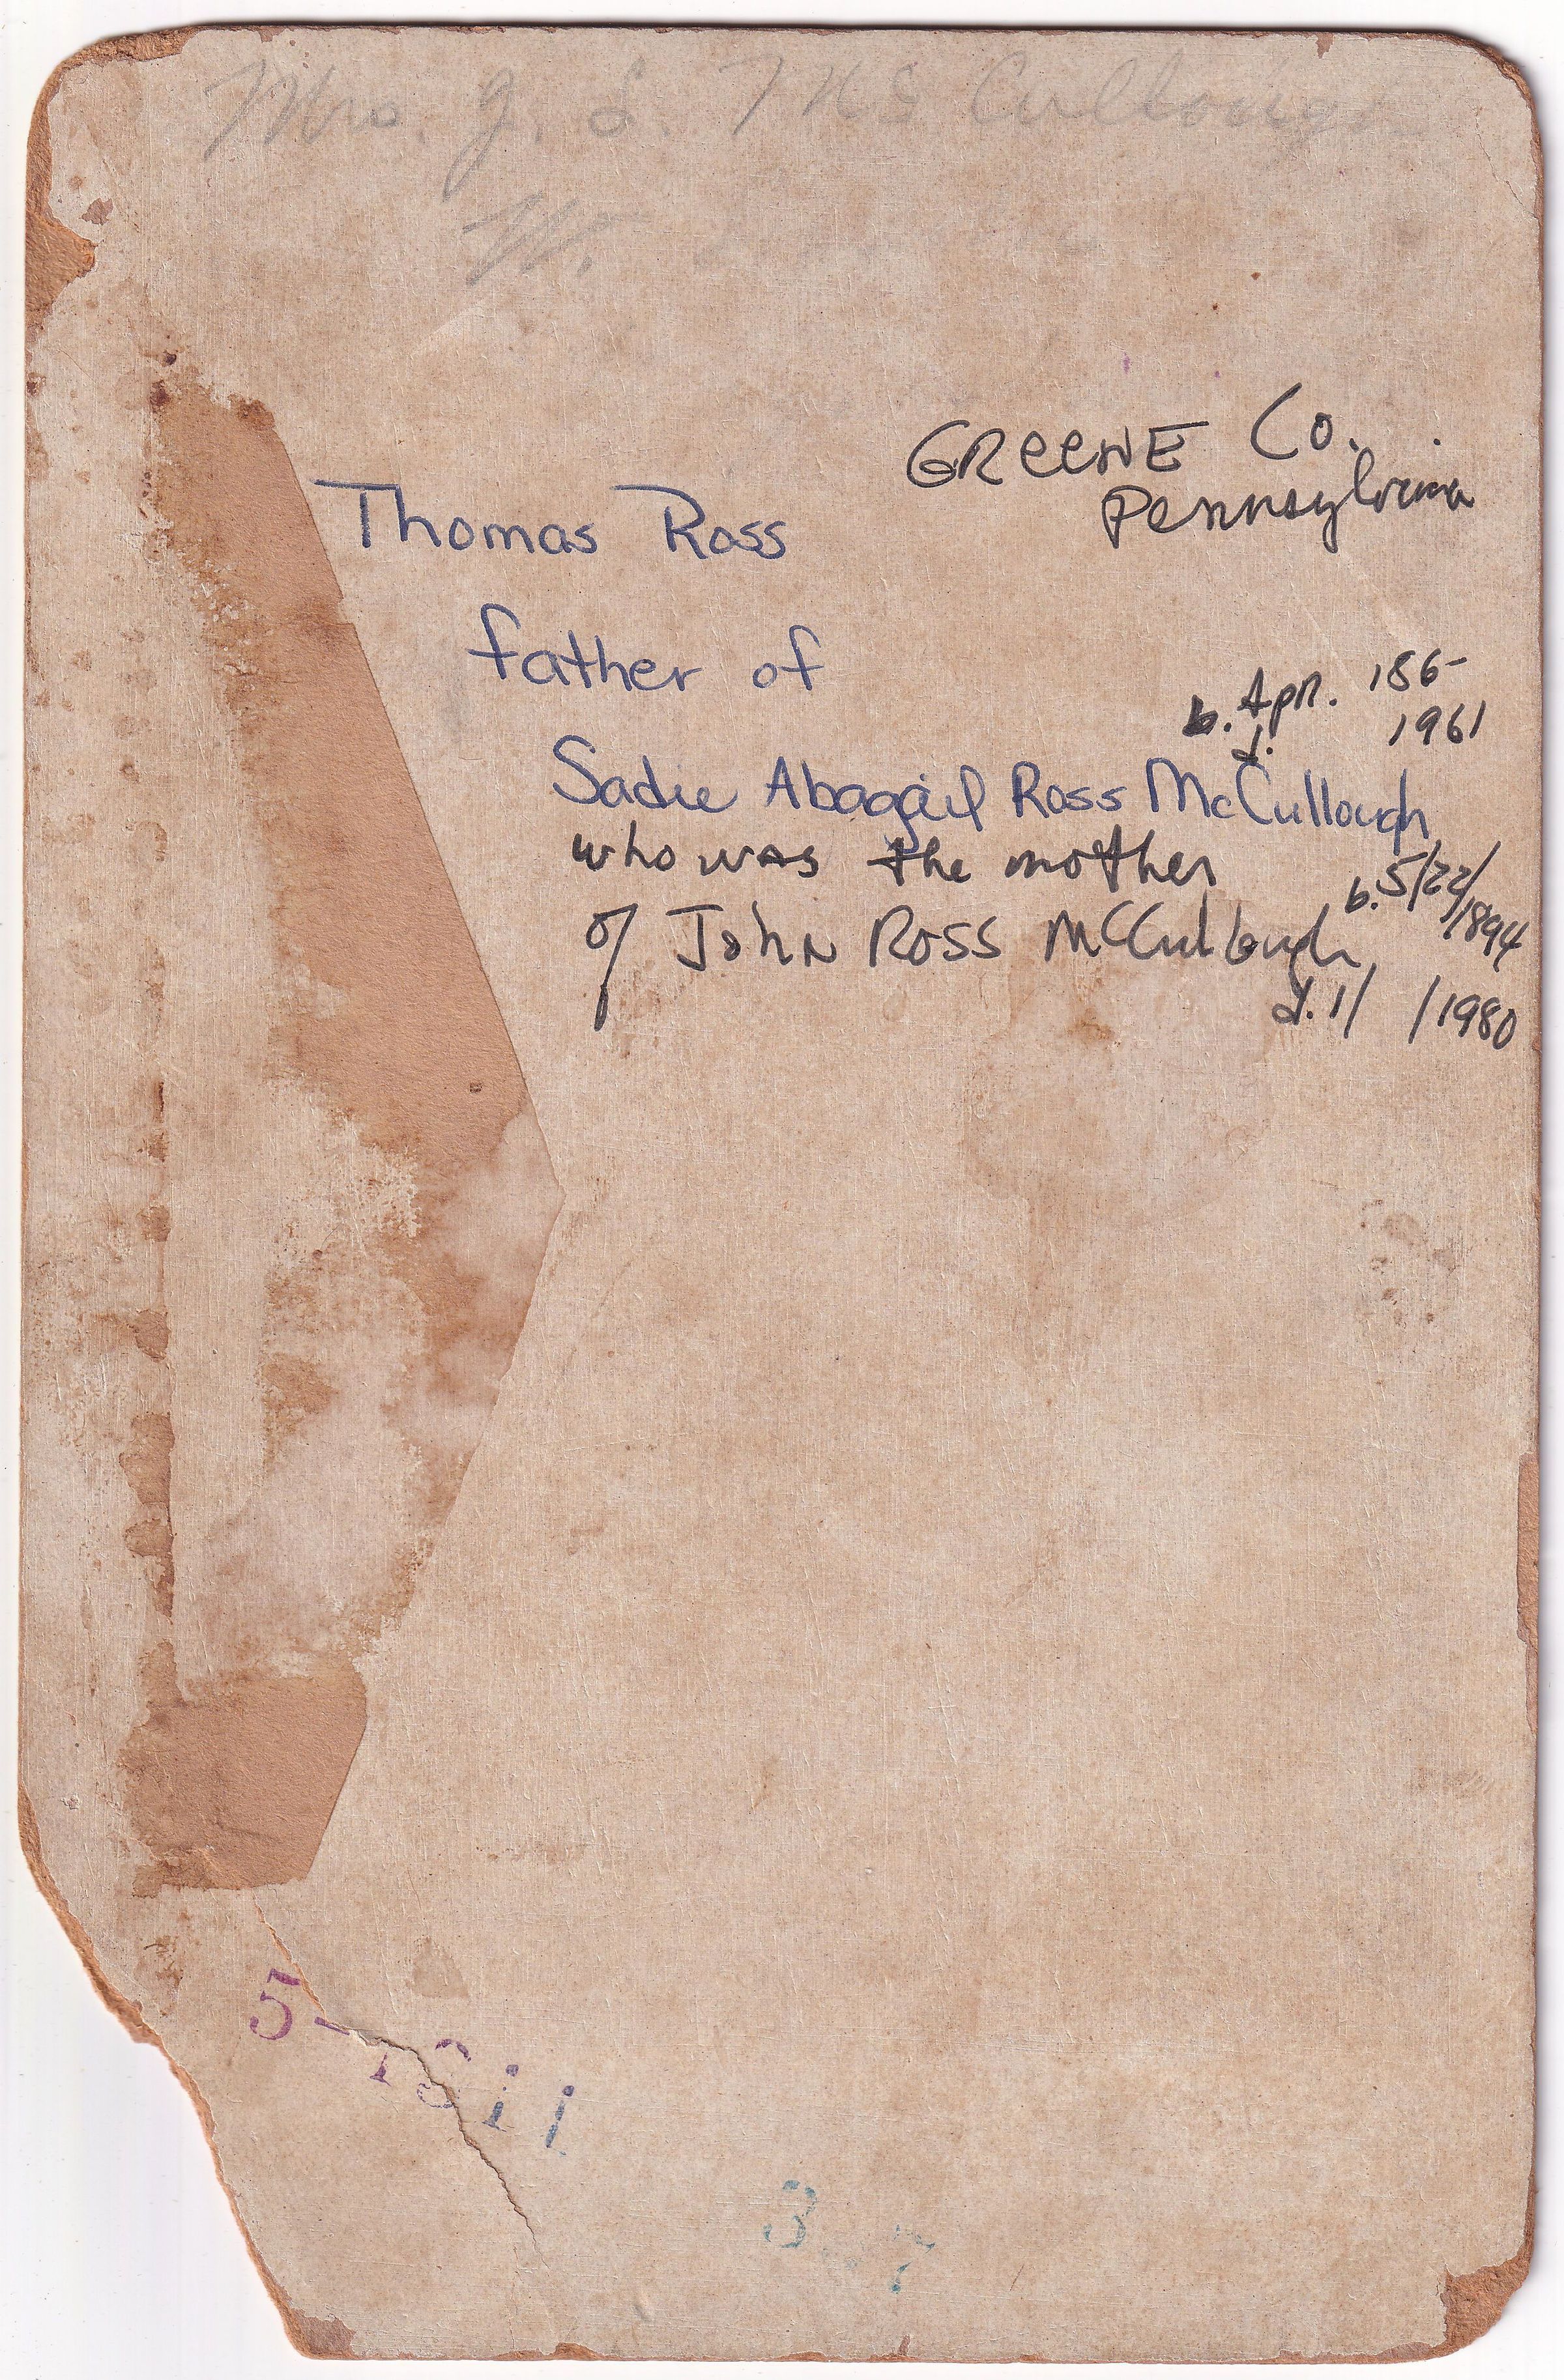 Mrs. J. L. McCullough
W.
GREENE Co.
Pennsylvania
Thomas Ross
father of
b. Apr. 186-
d. 1961
Sadie Abagail Ross McCullough
who was the mother
of John Ross McCullough
b. 5/22/1894
d. 1/ /1980
5-1811
3 7